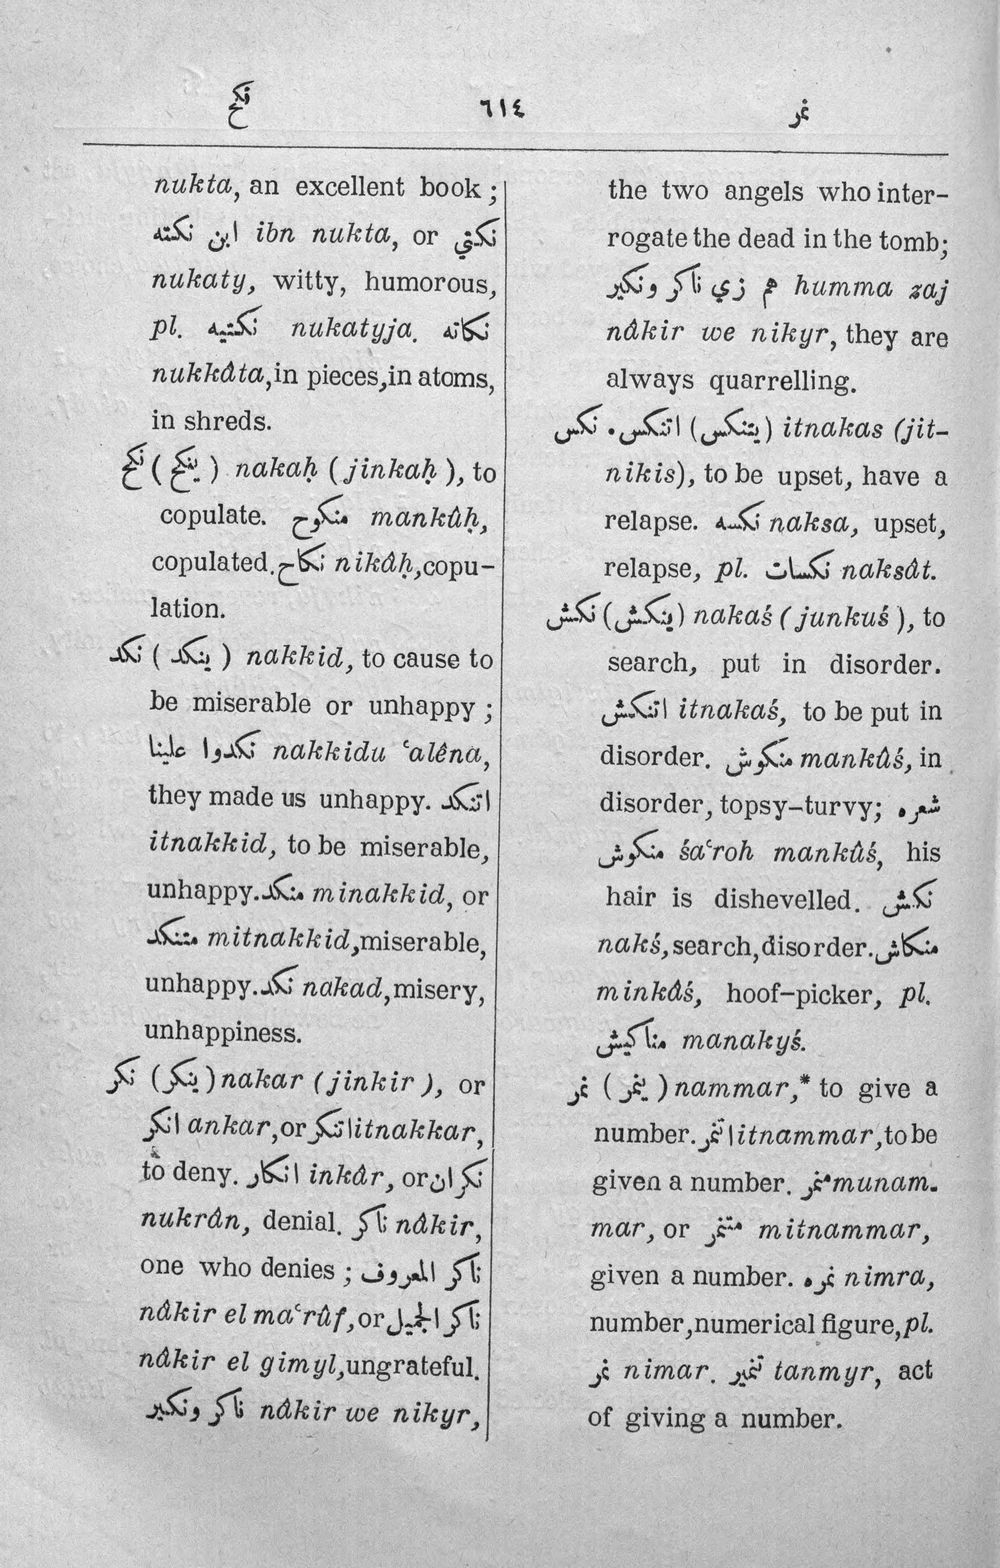 نكح ٦١٤ نمر
nukta, an excellent book ;
ابن نكته ibn nukta, or نكتي
nukaty, witty, humorous,
pl. نكتيه nukatyja. نكاته
nukkâta, in pieces, in atoms,
in shreds.
نكح ( ينكح ) nakaḥ ( jinkaḥ ), to
copulate. منكوح mankûḥ,
copulated. نكاح nikâḥ, copu-
lation.
نكد ( ينكد ) nakkid, to cause to
be miserable or unhappy ;
نكدوا علينا nakkidu ʿalêna,
they made us unhappy. اتنكد
itnakkid, to be miserable,
unhappy. منكد minakkid, or
متنكد mitnakkid, miserable,
unhappy. نكد nakad, misery,
unhappiness.
نكر (ينكر) nakar ( jinkir ), or
انكر ankar, or اتنكر itnakkar,
to deny. انكار inkâr, or نكران
nukrân, denial. ناكر nâkir,
one who denies ; ناكر المعروف
nâkir el maʿrûf, or ناكر الجميل
nâkir el gimyl, ungrateful.
ناكر ونكير nâkir we nikyr,
the two angels who inter-
rogate the dead in the tomb;
هم زي ناكر ونكير humma zaj
nâkir we nikyr, they are
always quarrelling.
نكس . اتنكس (يتنكس) itnakas (jit-
nikis), to be upset, have a
relapse. نكسه naksa, upset,
relapse, pl. نكسات naksât.
نكش (ينكش) nakaś ( junkuś ), to
search, put in disorder.
اتنكش itnakaś, to be put in
disorder. منكوش mankûś, in
disorder, topsy-turvy; شعره
منكوش śaʿroh mankûś, his
hair is dishevelled. نكش
nakś, search, disorder. منكاش
minkâś, hoof-picker, pl.
مناكيش manakyś.
نمر ( ينمر ) nammar,* to give a
number. اتنمر itnammar, to be
given a number. منمر munam-
mar, or متنمر mitnammar,
given a number. نمره nimra,
number, numerical figure, pl.
نمر nimar. تنمير tanmyr, act
of giving a number.